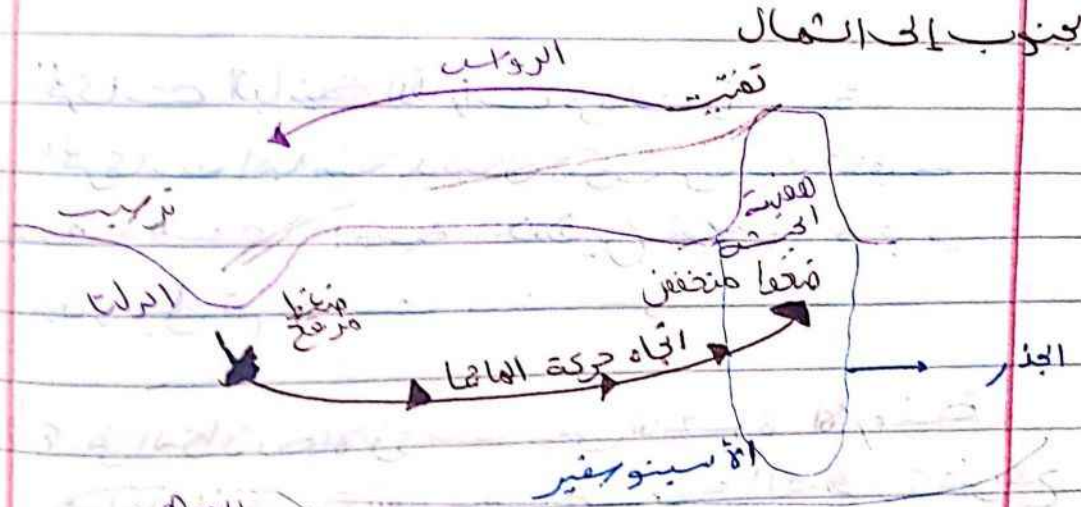 لجنوب إلى الشمال
تفتيت
الرواسب
هضبة
الحبشة
ترسيب
الدلتا
ضغط
مرتفع
ضغط منخفض
اتجاه حركة الماجما
الجذر
الأسينوسفير